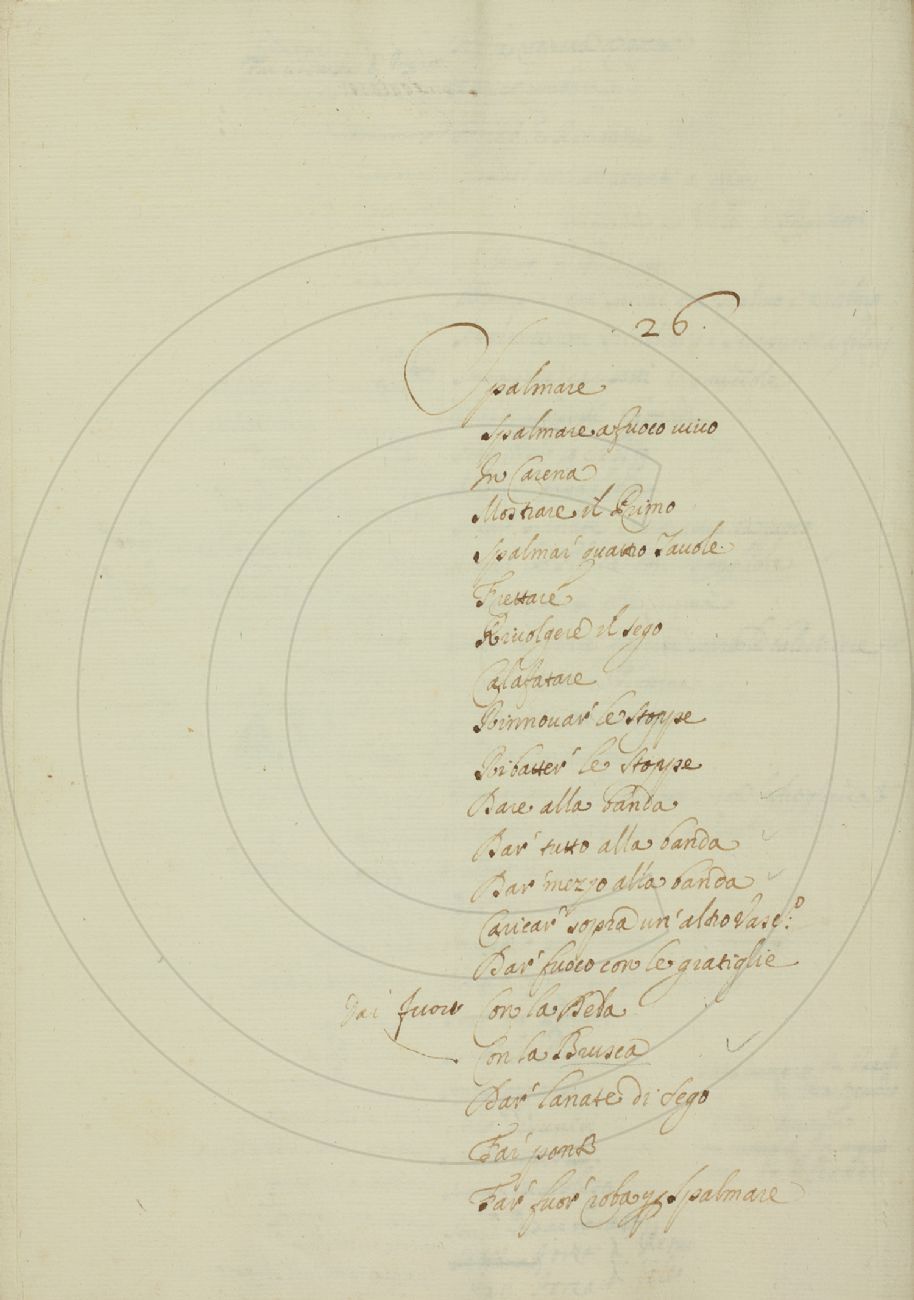 26.
Spalmare
Spalmare a fuoco uiuo
In Carena
Mostrare il Primo
Spalmar' quatro Tauole.
Frettare
Riuolgere il sego
Calafatare
Rinnouar' le stoppe
Ribatter' le stoppe
Dare alla banda
Dar' tutto alla banda
Dar' mezzo alla banda
Caricar' sopra un' altro Vasc:º
Dar' fuoco con le gratiglie
Dar fuoco Con la Pela
Con la Brusca
Dar' lanate di sego
Far ponte
Far' fuor' roba p Spalmare